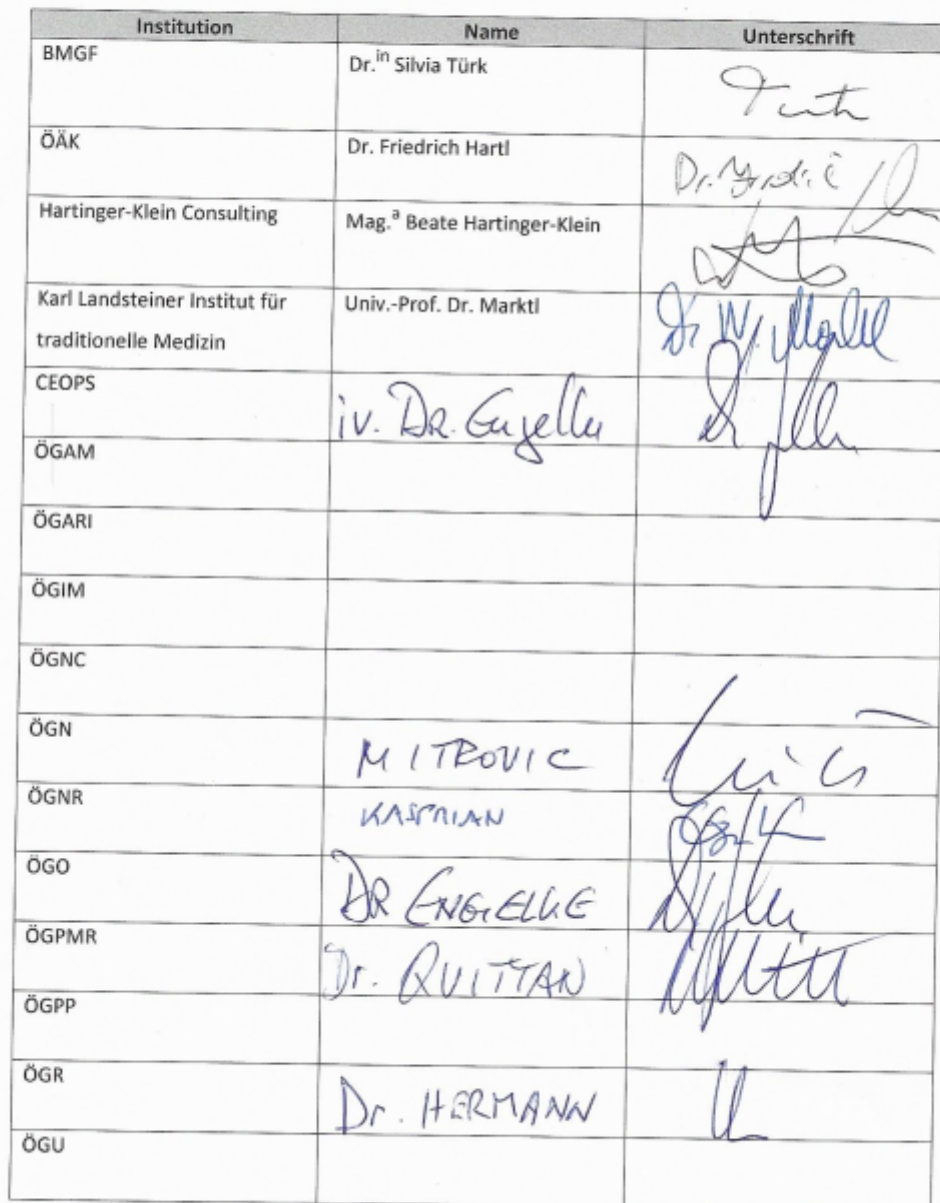 Institution Name Unterschrift
BMGF Dr.in Silvia Türk
ÖÄK Dr. Friedrich Hartl
Hartinger-Klein Consulting Mag.a Beate Hartinger-Klein
Karl Landsteiner Institut für Univ.-Prof. Dr. Marktl Dr W. Marktl
traditionelle Medizin
CEOPS iv. DR. Engelke
ÖGAM
ÖGARI
ÖGIM
ÖGNC
ÖGN MITROVIC
ÖGNR KASPRIAN
ÖGO DR ENGELKE
ÖGPMR Dr. QUITTAN
ÖGPP
ÖGR Dr. HERMANN
ÖGU